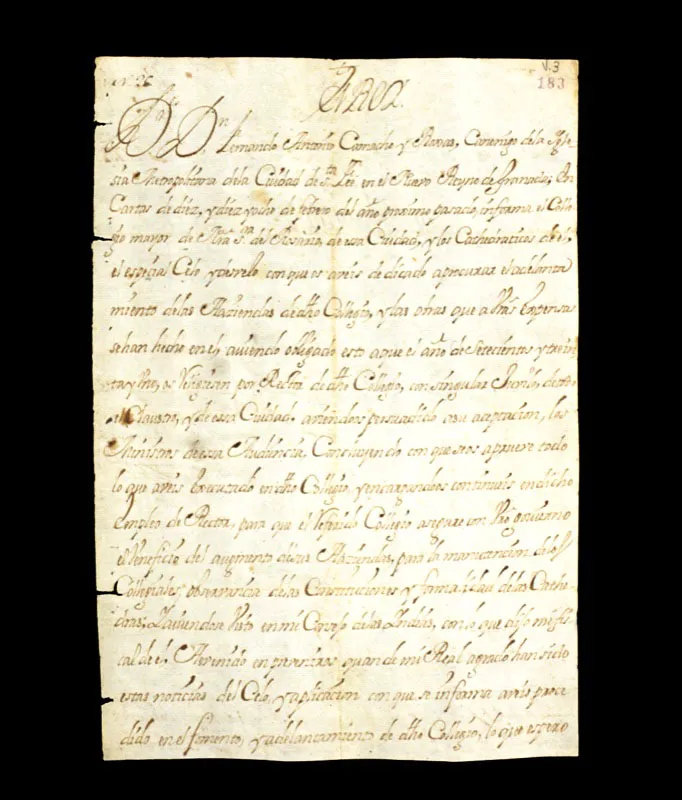 V.3
183
Dn Fernando Antonio Camacho y Roxas, Canonigo de la Ygle
sia Metropolitana de la Ciudad de Sta Fee en el Nuevo Reyno de Granada; En
Cartas de diez, y diez y ocho de febrero del año proximo pasado, informa el Colle
gio mayor de Nra Sra del Rosario, de essa Ciudad, y los Cathedraticos de el,
el especial Celo y desvelo con que os aveis dedicado a procurar el adelanta
miento de las Haziendas de dho Collegio, y las obras que a Vras Expensas
se han hecho en el, aviendo obligado esto a que el año de Setecientos y trein
ta y tres, os eligiesen por Rector de dho Collegio, con singular de todo
el Claustro, y de essa Ciudad aviendos persuadido a su aceptacion, los
Ministros de essa Audiencia. Concluyendo con que se os aprueve todo
lo que aveis executado en dho Collegio, y encargandoos continueis en dicho
Empleo de Rector, para que el referido Collegio asegure con Vro govierno
el beneficio del augmento de sus Haziendas, para la manutencion de los
Collegiales, observancia de las Constituciones y formalidad de las Cathe
dras; Y aviendose visto en mi Consejo de las Indias, con lo que dijo mi fis
cal de el; He venido en preveniros quan de mi Real agrado han sido
estas noticias del Celo, y aplicacion con que se informa aveis proce
dido en el fomento, y adelantamiento de dho Collegio, lo que espero